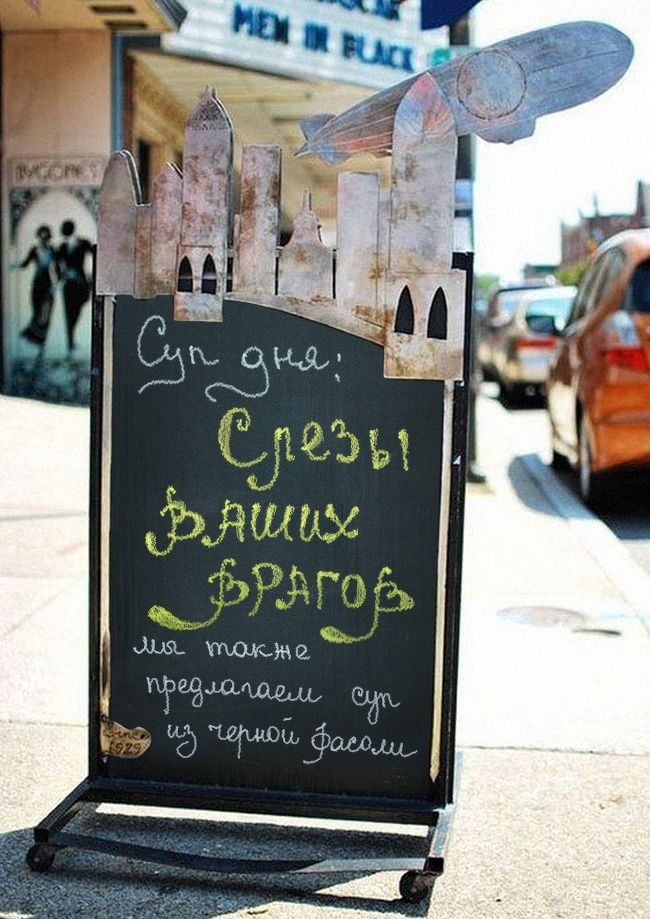 MEN IN BLACK
Суп дня:
Слезы
Ваших
врагов
мы также
предлагаем суп
из черной фасоли
Since
1929